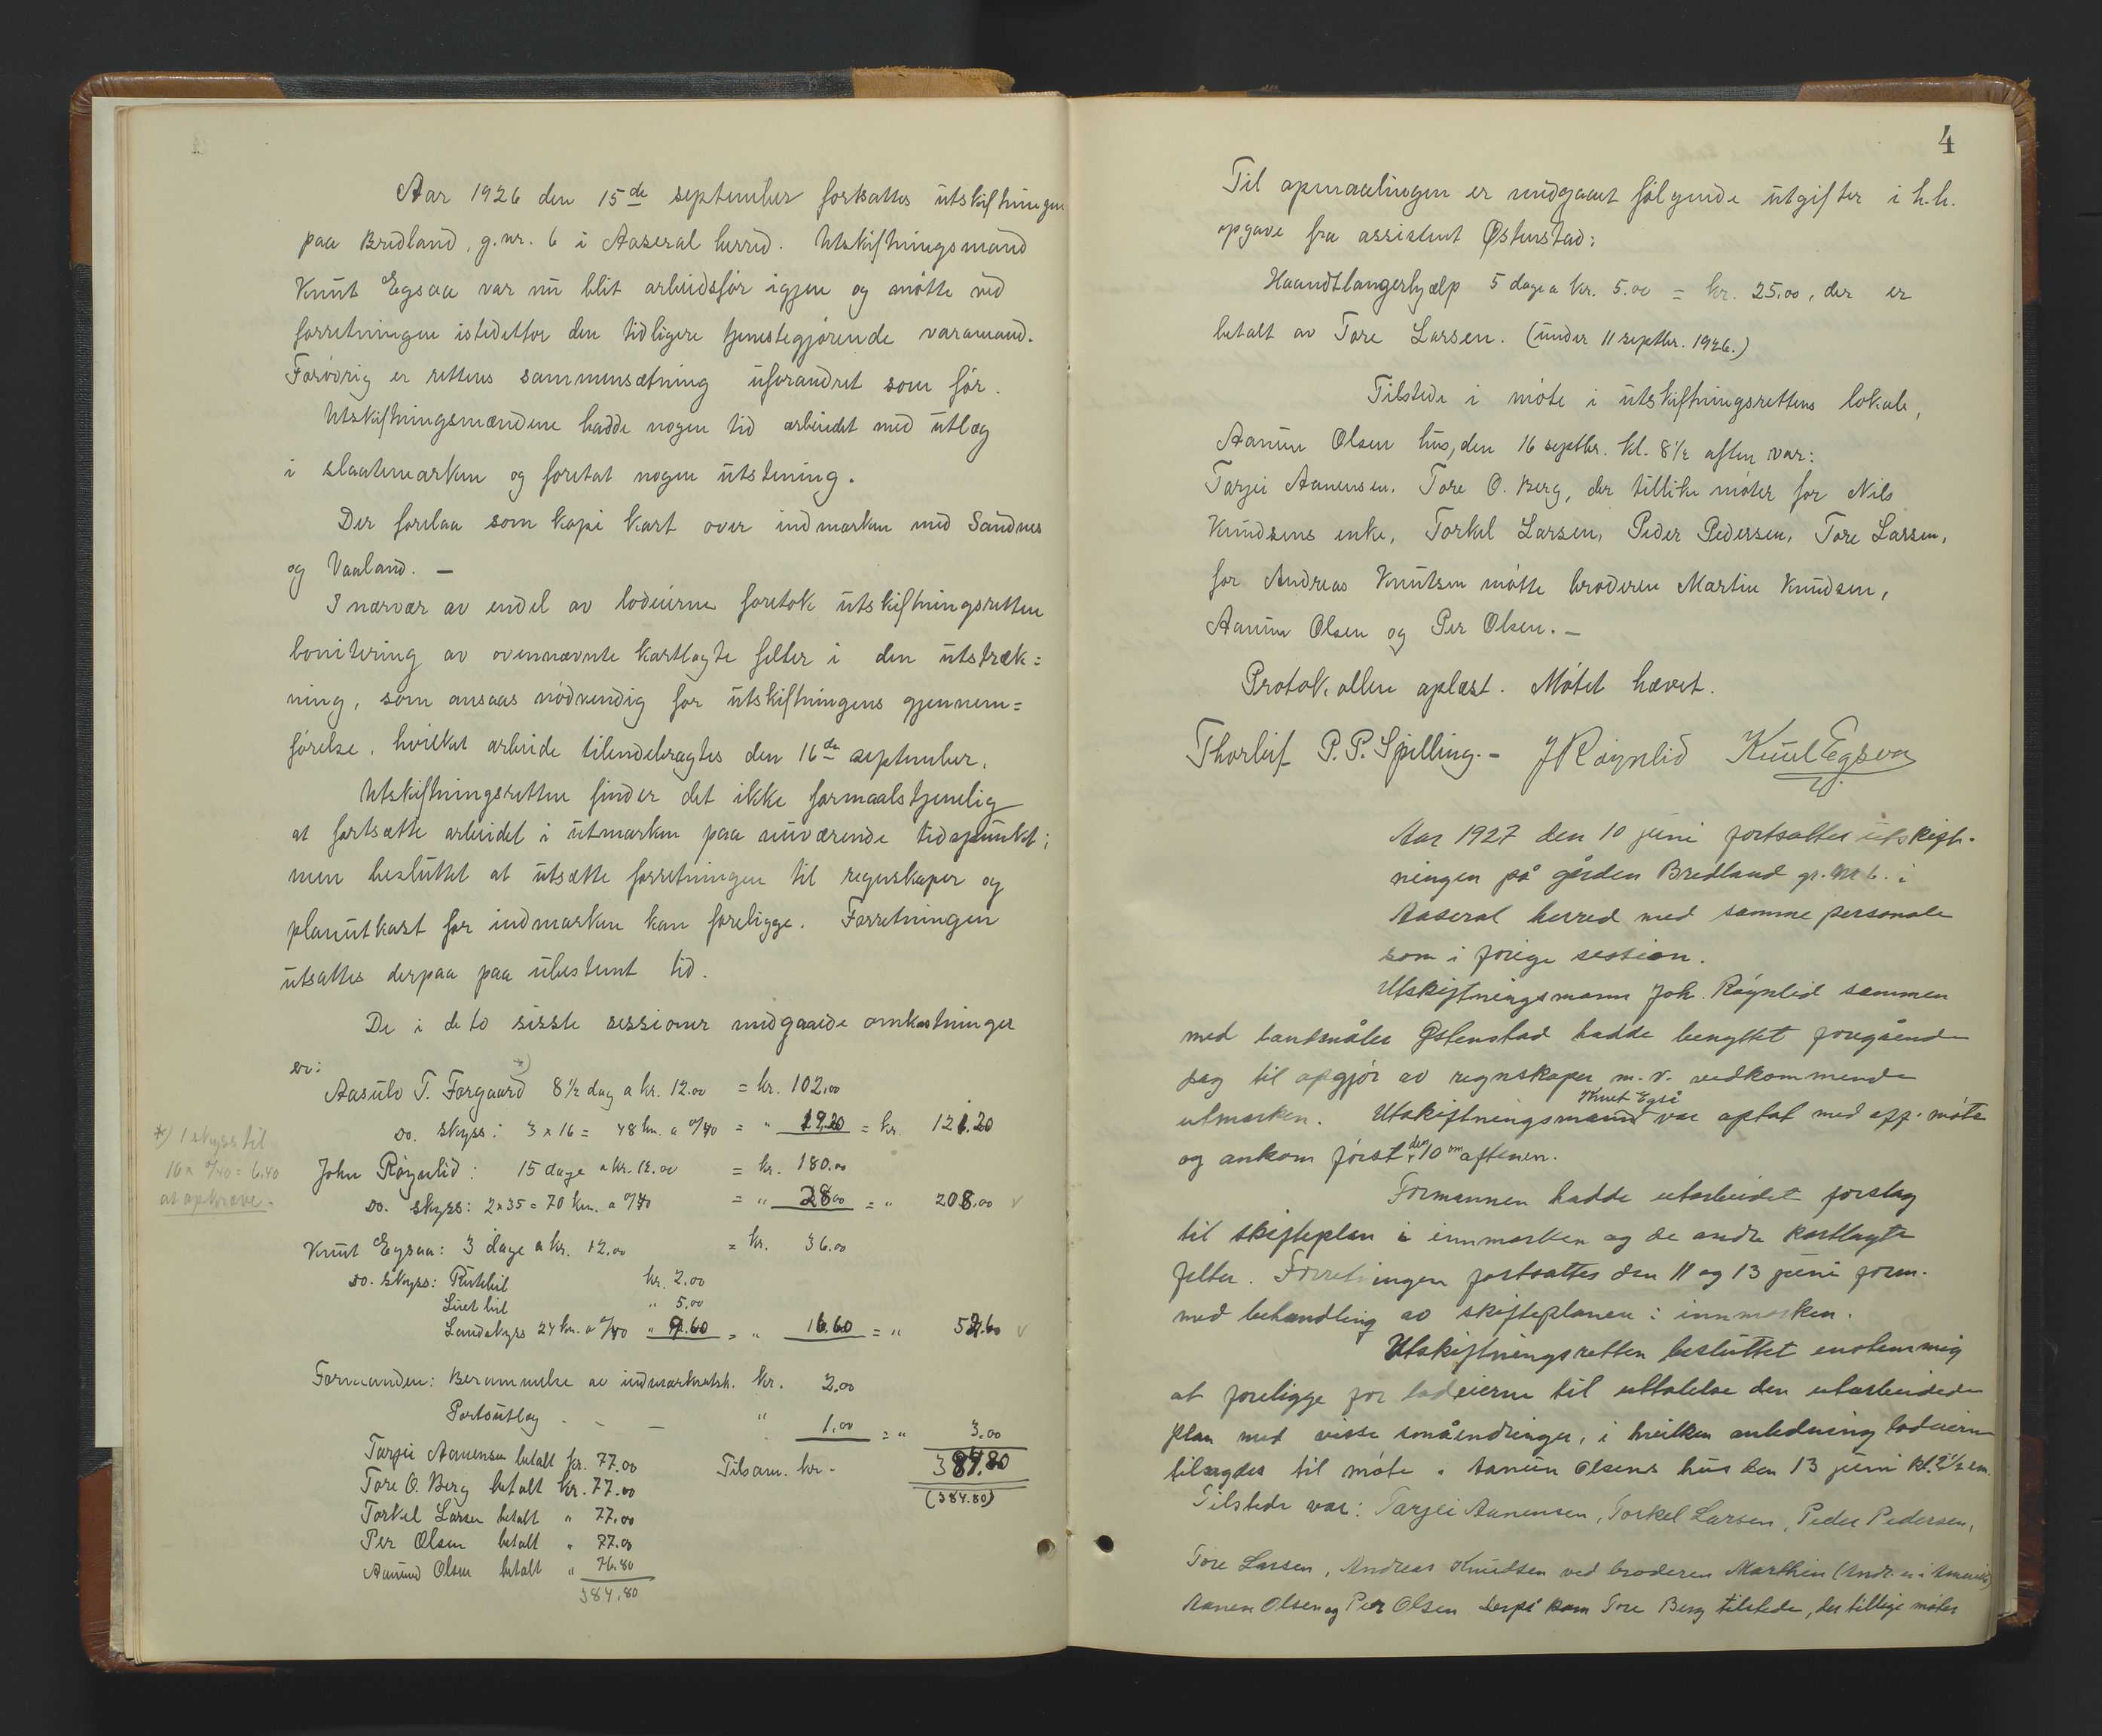 Aar 1926 den 15de september fortsattes utskiftningen
paa Bredland, g.nr. 6 i Aaseral herred. Utskiftningsmand
Knut Egsaa var nu blit arbeidsfør igjen og møtte ved
forretningen istedetfor den tidligere tjenestegjørende varamand.
Forøvrig er rettens sammensætning uforandret som før.
Utskiftningsmændene hadde nogen tid arbeidet med utlæg
i slaatemarken og foretat nogen utstening.
Der forelaa som kopi kart over indmarken med Sandnes
og Vaaland. —
I nærvær av endel av lodeierne foretok utskiftningsretten
bonitering av ovennævnte kartlagte felter i den utstræk=
ning, som ansaas nødvendig for utskiftningens gjennem=
førelse, hvilket arbeide tilendebragtes den 16de september.
Utskiftningsretten finder det ikke formaalstjenelig
at fortsætte arbeidet i utmarken paa nuværende tidspunkt;
men besluttet at utsætte forretningen til regnskaper og
planutkast for indmarken kan foreligge. Forretningen
utsattes derpaa paa ubestemt tid.
De i de to sisste sessioner medgaaede omkostninger
er:
Aasulv T. Forgaard *) 8½ dag a kr. 12.00 = kr. 102.00
Do. skyss: 3 x 16 = 48 km. a 0/40 = " 19.20 = kr. 121.20
*) 1 skyss til
16 x 0/40 = 6.40
at opkræve.
John Røynlid: 15 dage a kr. 12.00 = kr. 180.00
Do. skyss: 2 x 35 = 70 km. a 0/40 = " 28.00 = " 208.00 v
Knut Egsaa: 3 dage a kr. 12.00 = kr. 36.00
Do. skyss: Rutebil kr. 2.00
Liret bil " 5.00
Landskyss 24 km. a 0/40 " 9.60 = " 16.60 = " 52.60 v
Formanden: Berammelse av indmarksutsk. kr. 2.00
Portoutlæg - - — " 1.00 = " 3.00
Tilsam. kr. - 384.80
(384.80)
Tarjei Aanensen betalt kr. 77.00
Tore O. Berg betalt kr. 77.00
Torkel Larsen betalt " 77.00
Per Olsen betalt " 77.00
Aanund Olsen betalt " 76.80
384,80
4
Til opmaalingen er medgaaet følgende utgifter i h.h.
opgave fra assistent Østenstad:
Haandtlangerhjælp 5 dage a kr. 5.00 = kr. 25.00, der er
betalt av Tore Larsen. (under 11 septbr. 1926.)
Tilstede i møte i utskiftningsrettens lokale,
Aanun Olsen hus, den 16 septbr. kl. 8½ aften var:
Tarjei Aanensen, Tore O. Berg, der tillike møter for Nils
Knudsens enke, Torkel Larsen, Peder Pedersen, Tore Larsen,
for Andreas Knutsen møtte broderen Martin Knudsen,
Aanun Olsen og Per Olsen. —
Protokollen oplæst. Møtet hævet.
Thorleif P. P. Spilling. - J Røynlid Knut Egsaa
Aar 1927 den 10 juni fortsattes utskift-
ningen på gården Bredland gr. nr. 6. i
Aaseral herred med samme personale
som i forige session.
Utskiftningsmann Joh. Røynlid sammen
med landmåler Østenstad hadde benyttet foregående
dag til opgjør av regnskaper m. v. vedkommende
utmarken. Utskiftningsmand Knut Egså var optat med off. møte
og ankom først den 10 om aftenen.
Formannen hadde utarbeidet forslag
til skifteplan i innmarken og de andre kartlagte
felter. Forretningen fortsattes den 11 og 13 juni form.
med behandling av skifteplanen i innmarken.
Utskiftningsretten besluttet enstemmig
at foreligge for lodeierne til uttalelse den utarbeidede
plan med visse småendringer, i hvilken anledning lodeierne
tilsagdes til møte i Aanun Olsens hus den 13 juni kl. 2½ em.
Tilstede var: Tarjei Aanensen, Torkel Larsen, Peder Pedersen,
Tore Larsen, Andreas Knudsen ved broderen Marthin (Andr. er i Amerika)
Aanen Olsen og Per Olsen derpå kom Tore Berg tilstede, der tillige møter